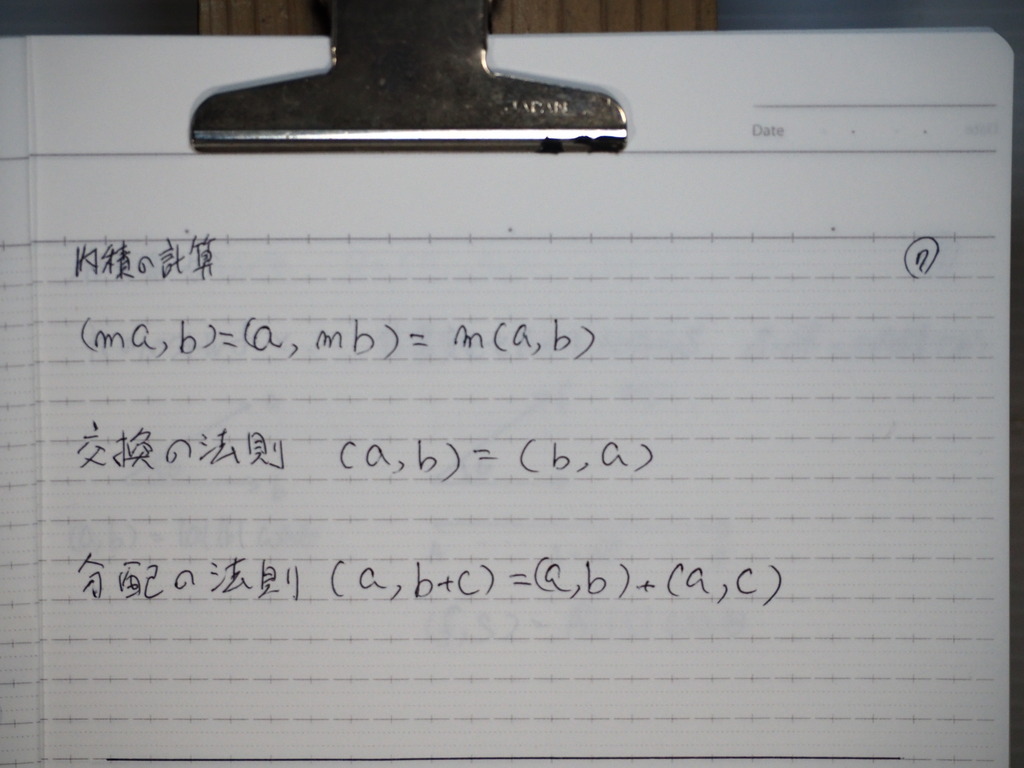 JAPAN
Date
内積の計算
(ma,b)=(a, mb) = m(a,b)
交換の法則 (a,b) = (b,a)
分配の法則 (a,b+c) =(a,b)+(a,c)